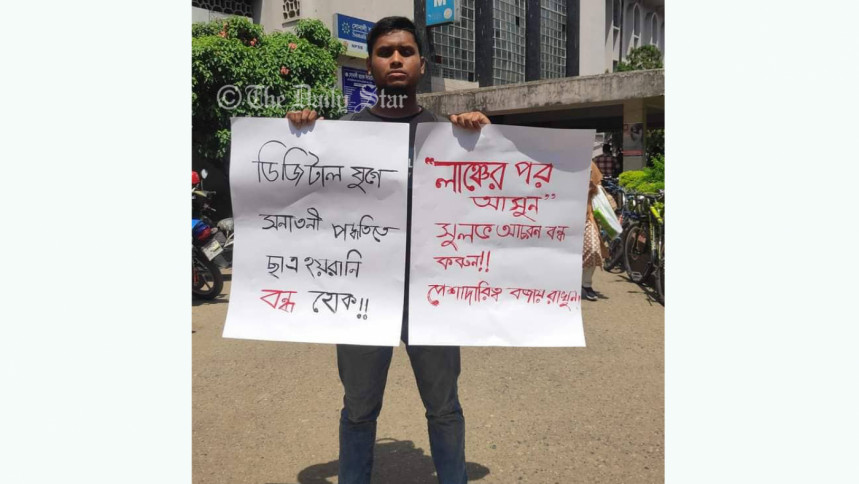 © The Daily Star
ডিজিটাল যুগে
সনাতনী পদ্ধতিতে
ছাত্র হয়রানি
বন্ধ হোক!!
"লাঞ্চের পর
আসুন"
সুলভ আচরন বন্ধ
করুন!!
পেশাদারিত্ব বজায় রাখুন!